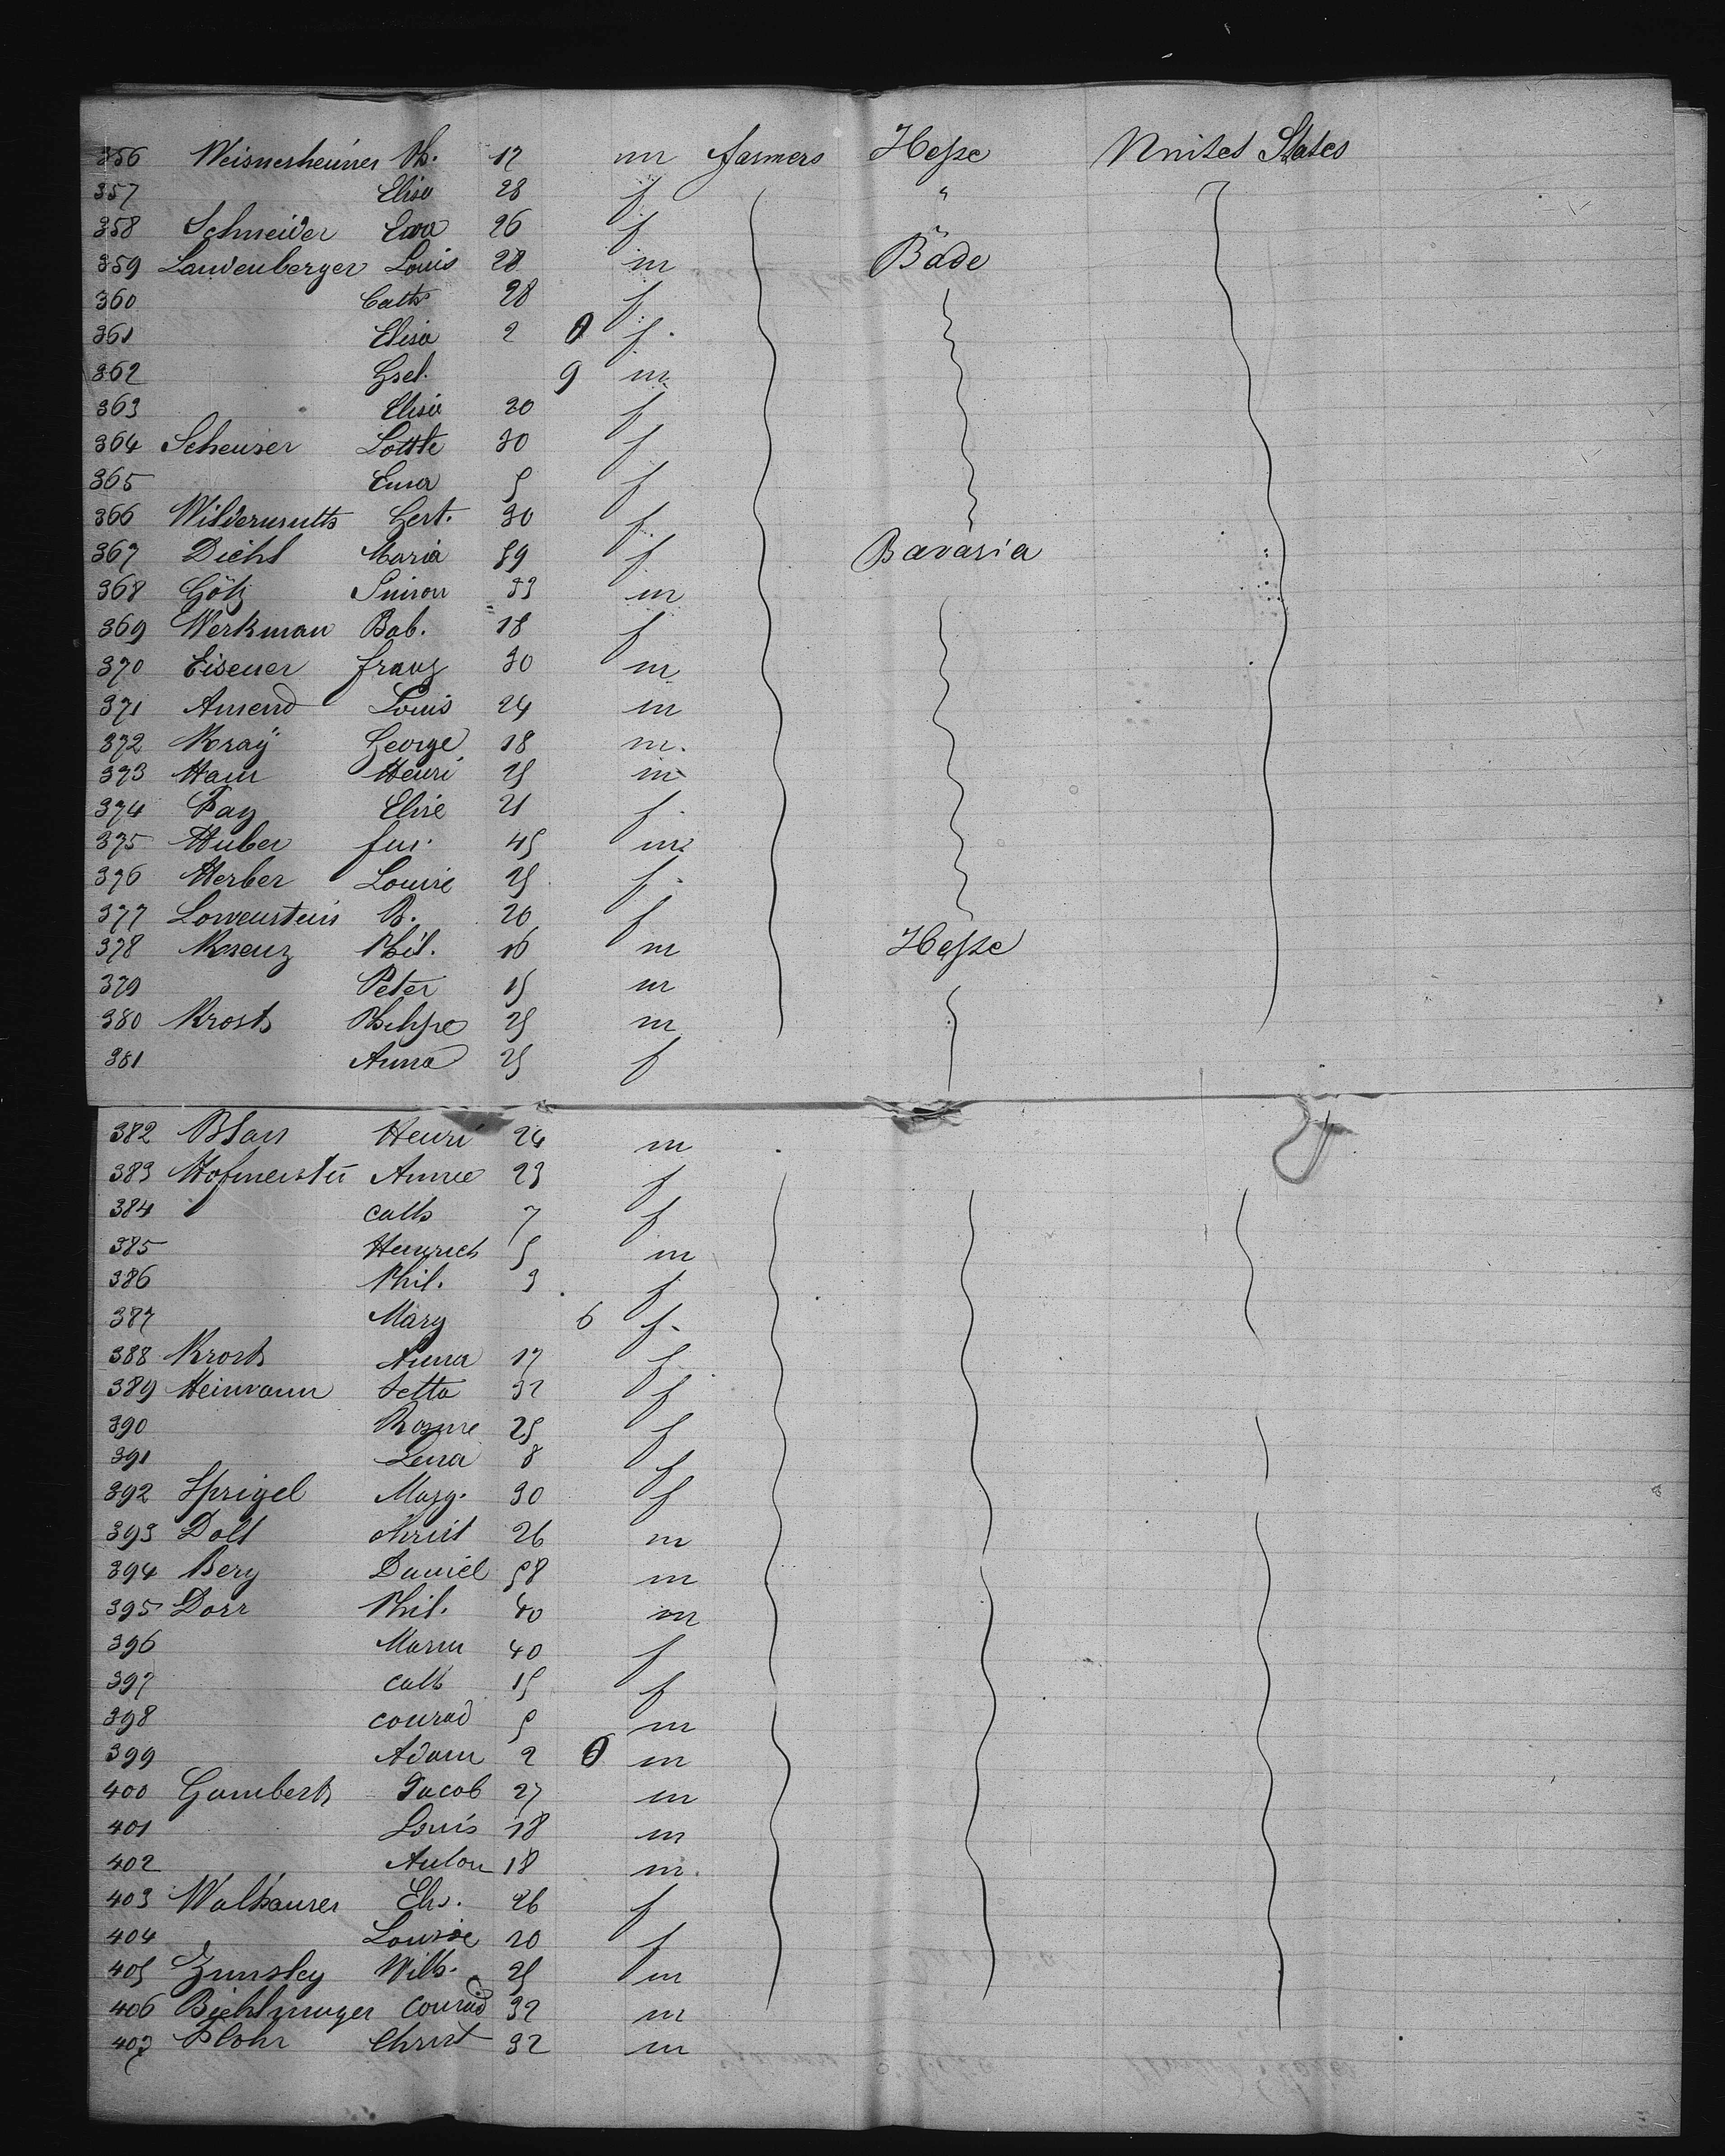 356 Weisnersheimer Ph. 17 m farmers Hesse United States
357 Elisa 28 f "
358 Schneider Eva 26 f "
359 Landenberger Louis 28 m Bade
360 Cath 28 f
361 Elisa 2 0 f
362 Gsel. 9 m
363 Elisa 20 f
364 Scheurer Lotte 30 f
365 Emma 5 f
366 Wildermuth Gert. 30 f
367 Diehl Maria 59 f Bavaria
368 Götz Simon 33 m
369 Werkman Bab. 18 f
370 Eisener franz 30 m
371 Amend Louis 24 m
372 Koraÿ George 18 m
373 Ham Henri 25 m
374 Fay Elise 21 f
375 Huber 45 m
376 Herber Louise 25 f
377 Lowenstein B. 20 f
378 Korenz Phil. 16 m Hesse
379 Peter 15 m
380 Krosh Philipe 25 m
381 Anna 25 f
382 Blan Henri 24 m
383 Hofmeister Annee 23 f
384 Cath 7 f
385 Heinrich 5 m
386 Phil. 3 f
387 Mary 6 f
388 Krosh Anna 17 f
389 Heinmann Jetta 32 f
390 Rosine 25 f
391 Lena 8 f
392 Sprigel Marg. 30 f
393 Dolt Christ 26 m
394 Berg Daniel 58 m
395 Dorr Phil. 40 m
396 Maria 40 f
397 Cath 15 f
398 Conrad 5 m
399 Adam 2 0 m
400 Gambert Jacob 27 m
401 Louis 18 m
402 Anton 18 m
403 Walhauser Elis. 26 f
404 Louise 20 f
405 Zunsky Wilh. 25 m
406 Conrad 32 m
407 Plohr Christ 32 m